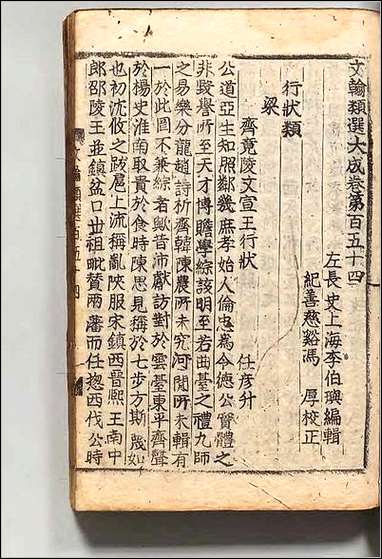 文翰類選大成卷第百五十四
左長史上海李伯璵編輯
紀善慈谿馮　厚校正
行狀類
梁
齊竟陵文宣王行狀　任彥升
公道亞生知照鄰幾庶孝始人倫忠爲令德公實體之
非毀譽所至天才博贍學綜該明至若曲臺之禮九師
之易樂分龍趙詩析齊韓陳農所未究河間所未輯有
一於此罔不兼綜者歟昔沛獻訪對於雲臺東平齊聲
於楊史淮南取貴於食時陳思見稱於七步方斯蔑如
也初沈攸之跋扈上流稱亂陜服宋鎭西晉熙王南中
郎邵陵王並鎭盆口世祖毗贊兩藩而任揔西伐公時
文翰類選百五十四